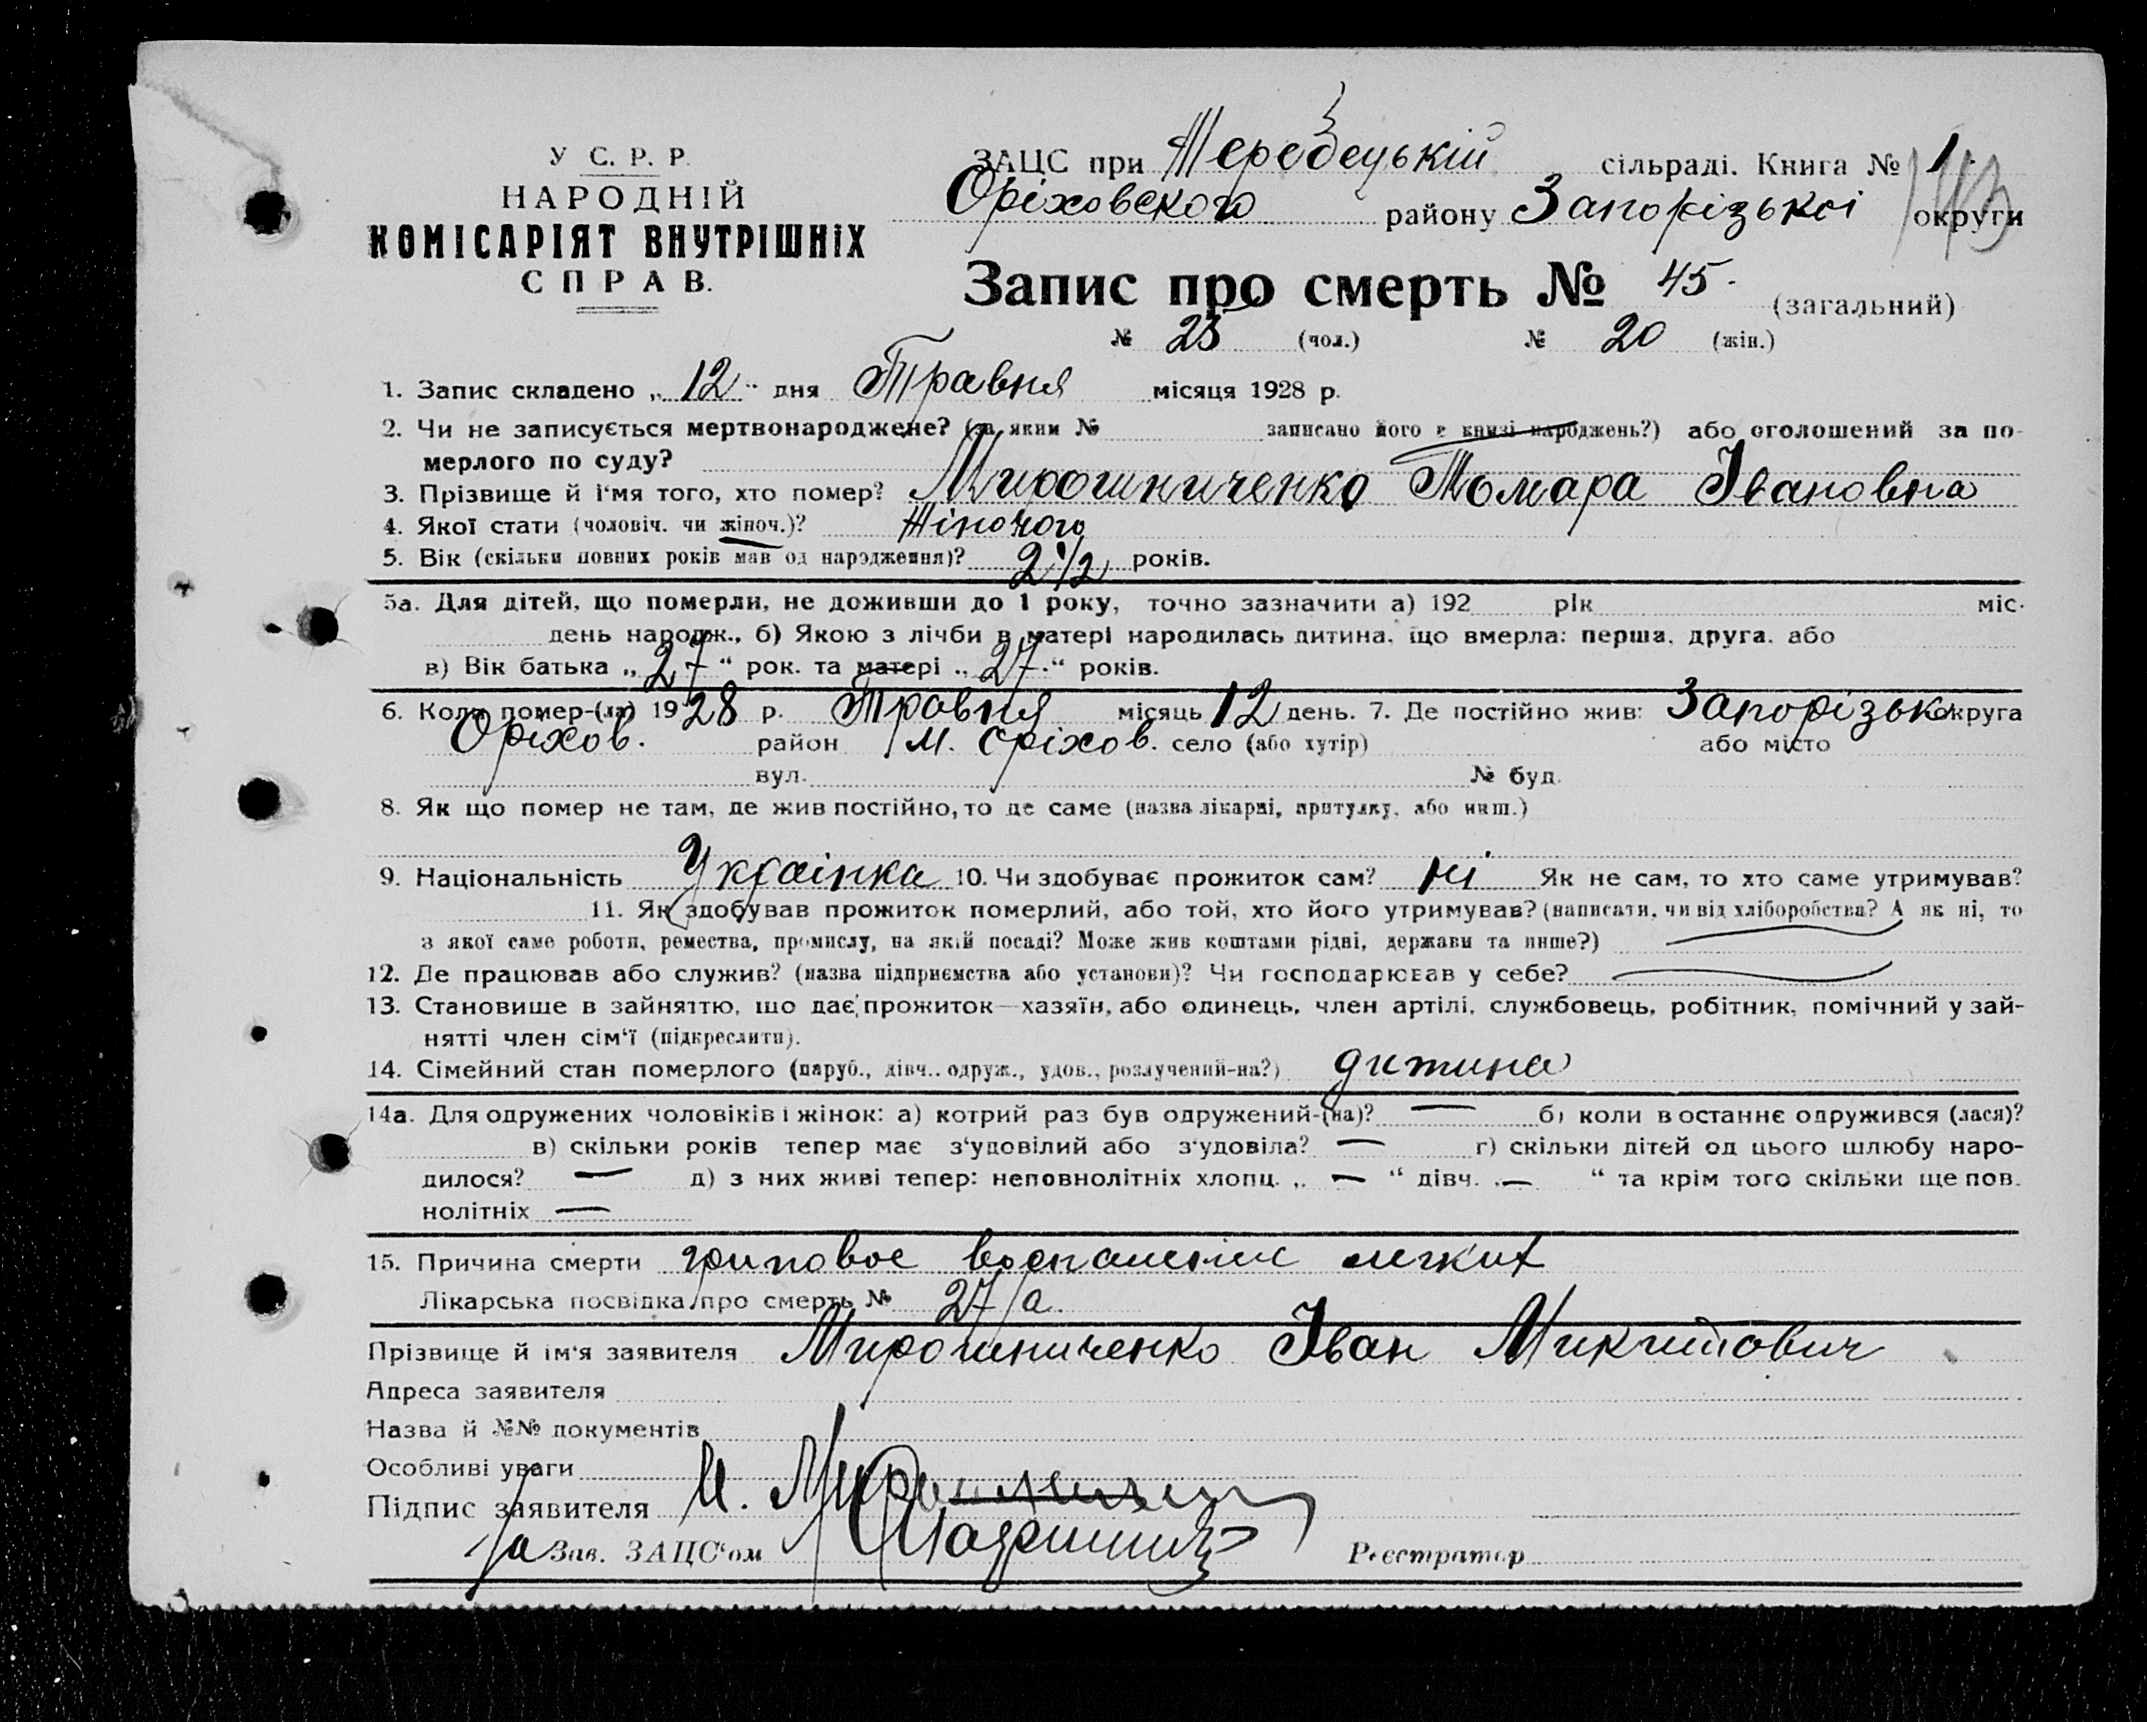 У С. Р. Р.
НАРОДНІЙ
КОМІСАРІЯТ ВНУТРІШНІХ
СПРАВ.
ЗАЦС при сільраді. Книга № 1.
Оріховского району Запорізькоі округи
Запис про смерть № 45. (загальний)
№ 25 (чол.) № 20 (жін.)
1. Запис складено „12" дня Травня місяця 1928 р.
2. Чи не записується мертвонароджене? (за яким № записано його в книзі народжень?) або оголошений за по-
мерлого по суду?
3. Прізвище й і'мя того, хто помер? Мирошниченко Томара Івановна
4. Якої стати (чоловіч. чи жіноч.)? Жіночого
5. Вік (скільки повних років мав од народження)? 2 1/2 років.
5а. Для дітей, що померли, не доживши до 1 року, точно зазначити а) 192 рік міс.
день народж., б) Якою з лічби в матері народилась дитина, що вмерла: перша, друга, або
в) Вік батька „27" рок. та матері „27." років.
6. Коли помер-(ла) 1928 р. Травня місяць 12 день. 7. Де постійно жив: Запорізьк округа
Оріхов. район м. Оріхов. село (або хутір) або місто
вул. № буд.
8. Як що помер не там, де жив постійно, то де саме (назва лікарні, притулку, або инш.)
9. Національність Украінка 10. Чи здобуває прожиток сам? ні Як не сам, то хто саме утримував?
11. Як здобував прожиток померлий, або той, хто його утримував? (написати, чи від хліборобства? А як ні, то
з якої саме роботи, ремества, промислу, на якій посаді? Може жив коштами рідні, держави та инше?)
12. Де працював або служив? (назва підприємства або установи)? Чи господарював у себе?
13. Становище в зайняттю, що дає прожиток—хазяїн, або одинець, член артілі, службовець, робітник, помічний у зай-
нятті член сім'ї (підкреслити).
14. Сімейний стан померлого (паруб., дівч.. одруж., удов., розлучений-на?) дитина
14а. Для одружених чоловіків і жінок: а) котрий раз був одружений-(на)? — б) коли востаннє одружився (лася)?
в) скільки років тепер має з'удовілий або з'удовіла? — г) скільки дітей од цього шлюбу наро-
дилося? — д) з них живі тепер: неповнолітніх хлопц. „ — " дівч. „ — " та крім того скільки ще пов.
нолітніх —
15. Причина смерти гриповое воспаление легких
Лікарська посвідка про смерть № 27/а.
Прізвище й ім'я заявителя Мирошниченко Іван Микитович
Адреса заявителя
Назва й №№ документів
Особливі уваги
Підпис заявителя И.
За Зав. ЗАЦС'ом Реєстратор